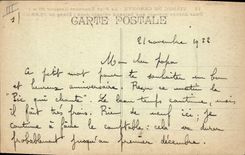 CARTE POSTALE
21 novembre 1932
Mon cher papa
Un petit mot pour te souhaiter un bon
et heureux anniversaire. Reçu ce matin le
"Bic qui chante". Le beau temps continue, mais
il fait très frais. Rien de neuf ici; je
continue à faire le comptable; cela va durer
probablement jusqu'au premier décembre.